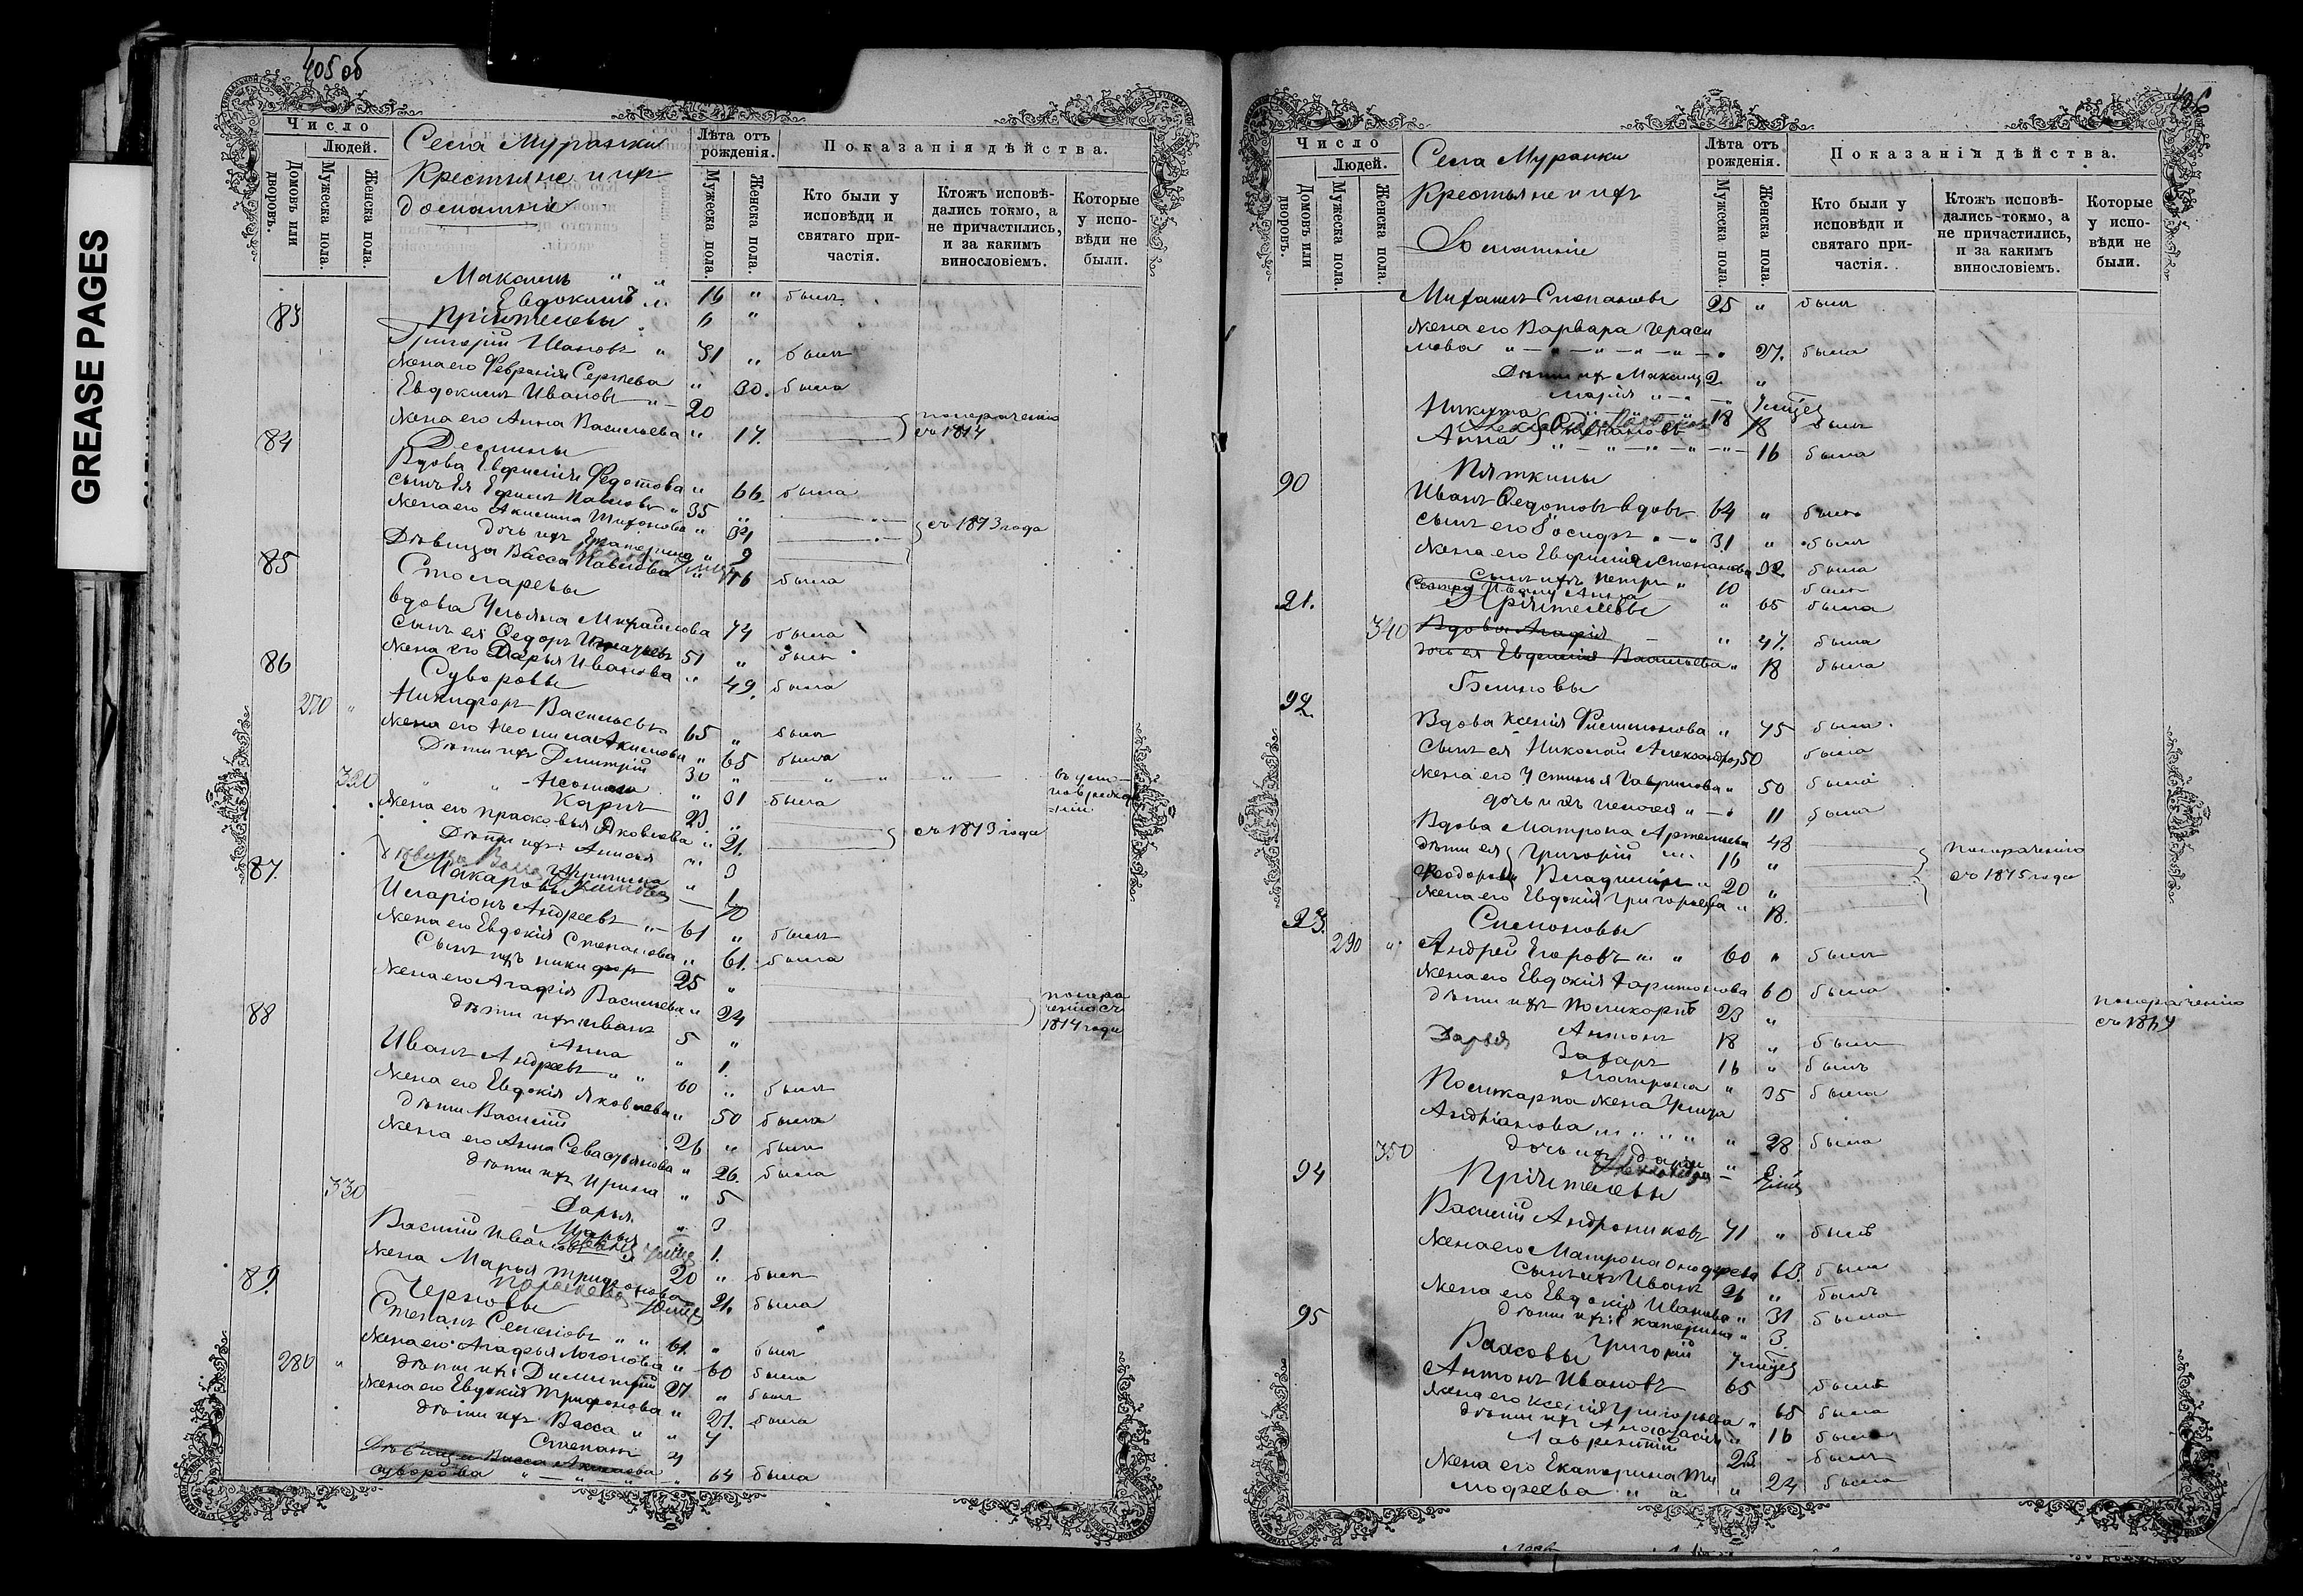 GREASE PAGES
405 об
Число
Людей.
Домовъ или дворовъ.
Мужеска пола.
Женска пола.
Села Муранки
Крестьяне и ихъ
домашніе
Лѣта отъ рожденія.
Мужеска пола.
Женска пола.
Показанія дѣйства.
Кто были у исповѣди и святаго причастія.
Ктожъ исповѣдались токмо, а не причастились, и за какимъ винословіемъ.
Которые у исповѣди не были.
Максимъ " "
Евдокимъ " 16 " былъ
83 Пріятелевы 6 "
Григорій Ивановъ " 31 " былъ
жена его Февронія Сергѣева " 30. была
Евдокимъ Ивановъ " 20
жена его Анна Васильева " 17.
84 Демины
Вдова Евфимія Федотова " 66. была
сынъ ея Ефимъ Павловъ " 35 "
жена его Акилина Тихонова " 34 съ 1873 года
дочь ихъ Екатерина " 9
Дѣвица Васса Павлова " 46 была
85 Столаревы
вдова Ульяна Михайлова 74 была
сынъ ея Федоръ 51 " былъ
жена его Дарья Иванова " 49. была
86 Суворовы
270 " Никифоръ Васильевъ 65 " былъ
жена его Неонила Акимова " 65 была
Дѣти ихъ Димитрій 30 "
320 " 31 была
Карпъ 23. "
жена его Прасковья Яковлева " 21. съ 1873 года
Дѣти ихъ: Анисья " 3
87. Макаровы
Иларіонъ Андреевъ " 61 " былъ
жена его Евдокія Степанова " 61. была
Сынъ ихъ Никифоръ 25 "
жена его Агафія Васильева " 24
88 дѣти ихъ Иванъ 5 "
Анна " 1.
Иванъ Андреевъ " " 60 " былъ
жена его Евдокія Яковлева " 50 была
дѣти Василій 26 " былъ
жена его Анна Севастьянова " 26. была
дѣти ихъ Ирина " 5
330 Дарья " 3
Марья 1.
Василій Ивановъ 20 " былъ
жена Марья Трифонова 21. была
89. Черновы
Степанъ Семеновъ " " 61. " былъ
жена его Агафья " 60 была
280 " дѣти ихъ: Димитрій 27 " былъ
жена его Евдокія Трифонова " 21. была
дѣти ихъ Васса " " 4
Степанъ
Дѣвица Васса
Суворова " 64 была
406
Число
Людей.
Домовъ или дворовъ.
Мужеска пола.
Женска пола.
Села Муранки
Крестьяне и ихъ
Домашніе
Лѣта отъ рожденія.
Мужеска пола.
Женска пола.
Показанія дѣйства.
Кто были у исповѣди и святаго причастія.
Ктожъ исповѣдались токмо, а не причастились, и за какимъ винословіемъ.
Которые у исповѣди не были.
Михаилъ Степановъ 25 " былъ
жена его Варвара Гераси
мова " 27. была
Дѣти ихъ Максимъ 2 "
Марія "
Никита 18 былъ
Анна " 16 была
90 Пяткины
Иванъ Федотовъ вдовъ 64 " былъ
сынъ его Іосифъ " 31 " былъ
жена его Евфимія Степанова 32. была
Сынъ ихъ Петръ " 10 былъ
Сестра Ивану Анна " 65 была
91. Пріятелевы
340 Вдова Агафія " 47. была
дочь ея Евдокія Васильева " 18 была
92. Блиновы
Вдова Ксенія Филимонова " 75 была
Сынъ ея Николай Александров 50 былъ
жена его Устинья Гаврилова " 50 была
дочь ихъ Пелагея " 11 была
Вдова Матрона Артемьева 48
дѣти ея Григорій " 16 "
Владиміръ " 20 " съ 1875 года
жена его Евдокія Григорьева " 18.
93. Симоновы
290 " Андрей Егоровъ " " 60 " былъ
жена его Евдокія Харитонова 60 была
дѣти ихъ Поликарпъ 23 "
Антонъ 18 " былъ
Захаръ 16 " былъ
Матрона " 35 была
Поликарпа жена
Андріанова " " " " 28 была
350 дочь ихъ Дарья
94 Пріятелевы
Василій Андрониковъ 71 " былъ
жена его Матрона 63. была
Сынъ ихъ Иванъ 26 " былъ
жена его Евдокія Иванова " 31 была
дѣти ихъ: Екатерина " 3
Григорій
95 Власовы
Антонъ Ивановъ 65 былъ
жена его Ксенія Григорьева " 65 была
дѣти ихъ Анастасія " 16 была
Лаврентій 23. былъ
жена его Екатерина Ти
мофеева " " " 24 была